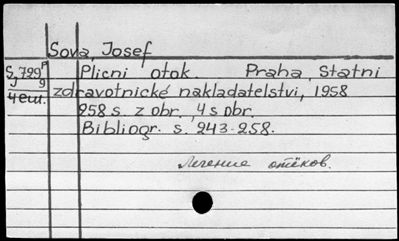 Sova, Josef
S. 729 P Plicni otok. Praha, Statni
J 9
4 ext. zdravotnické nakladatelstvi, 1958
258 s. z obr., 4 s obr.
Bibliogr. s. 243-258.
Лечение отёков.